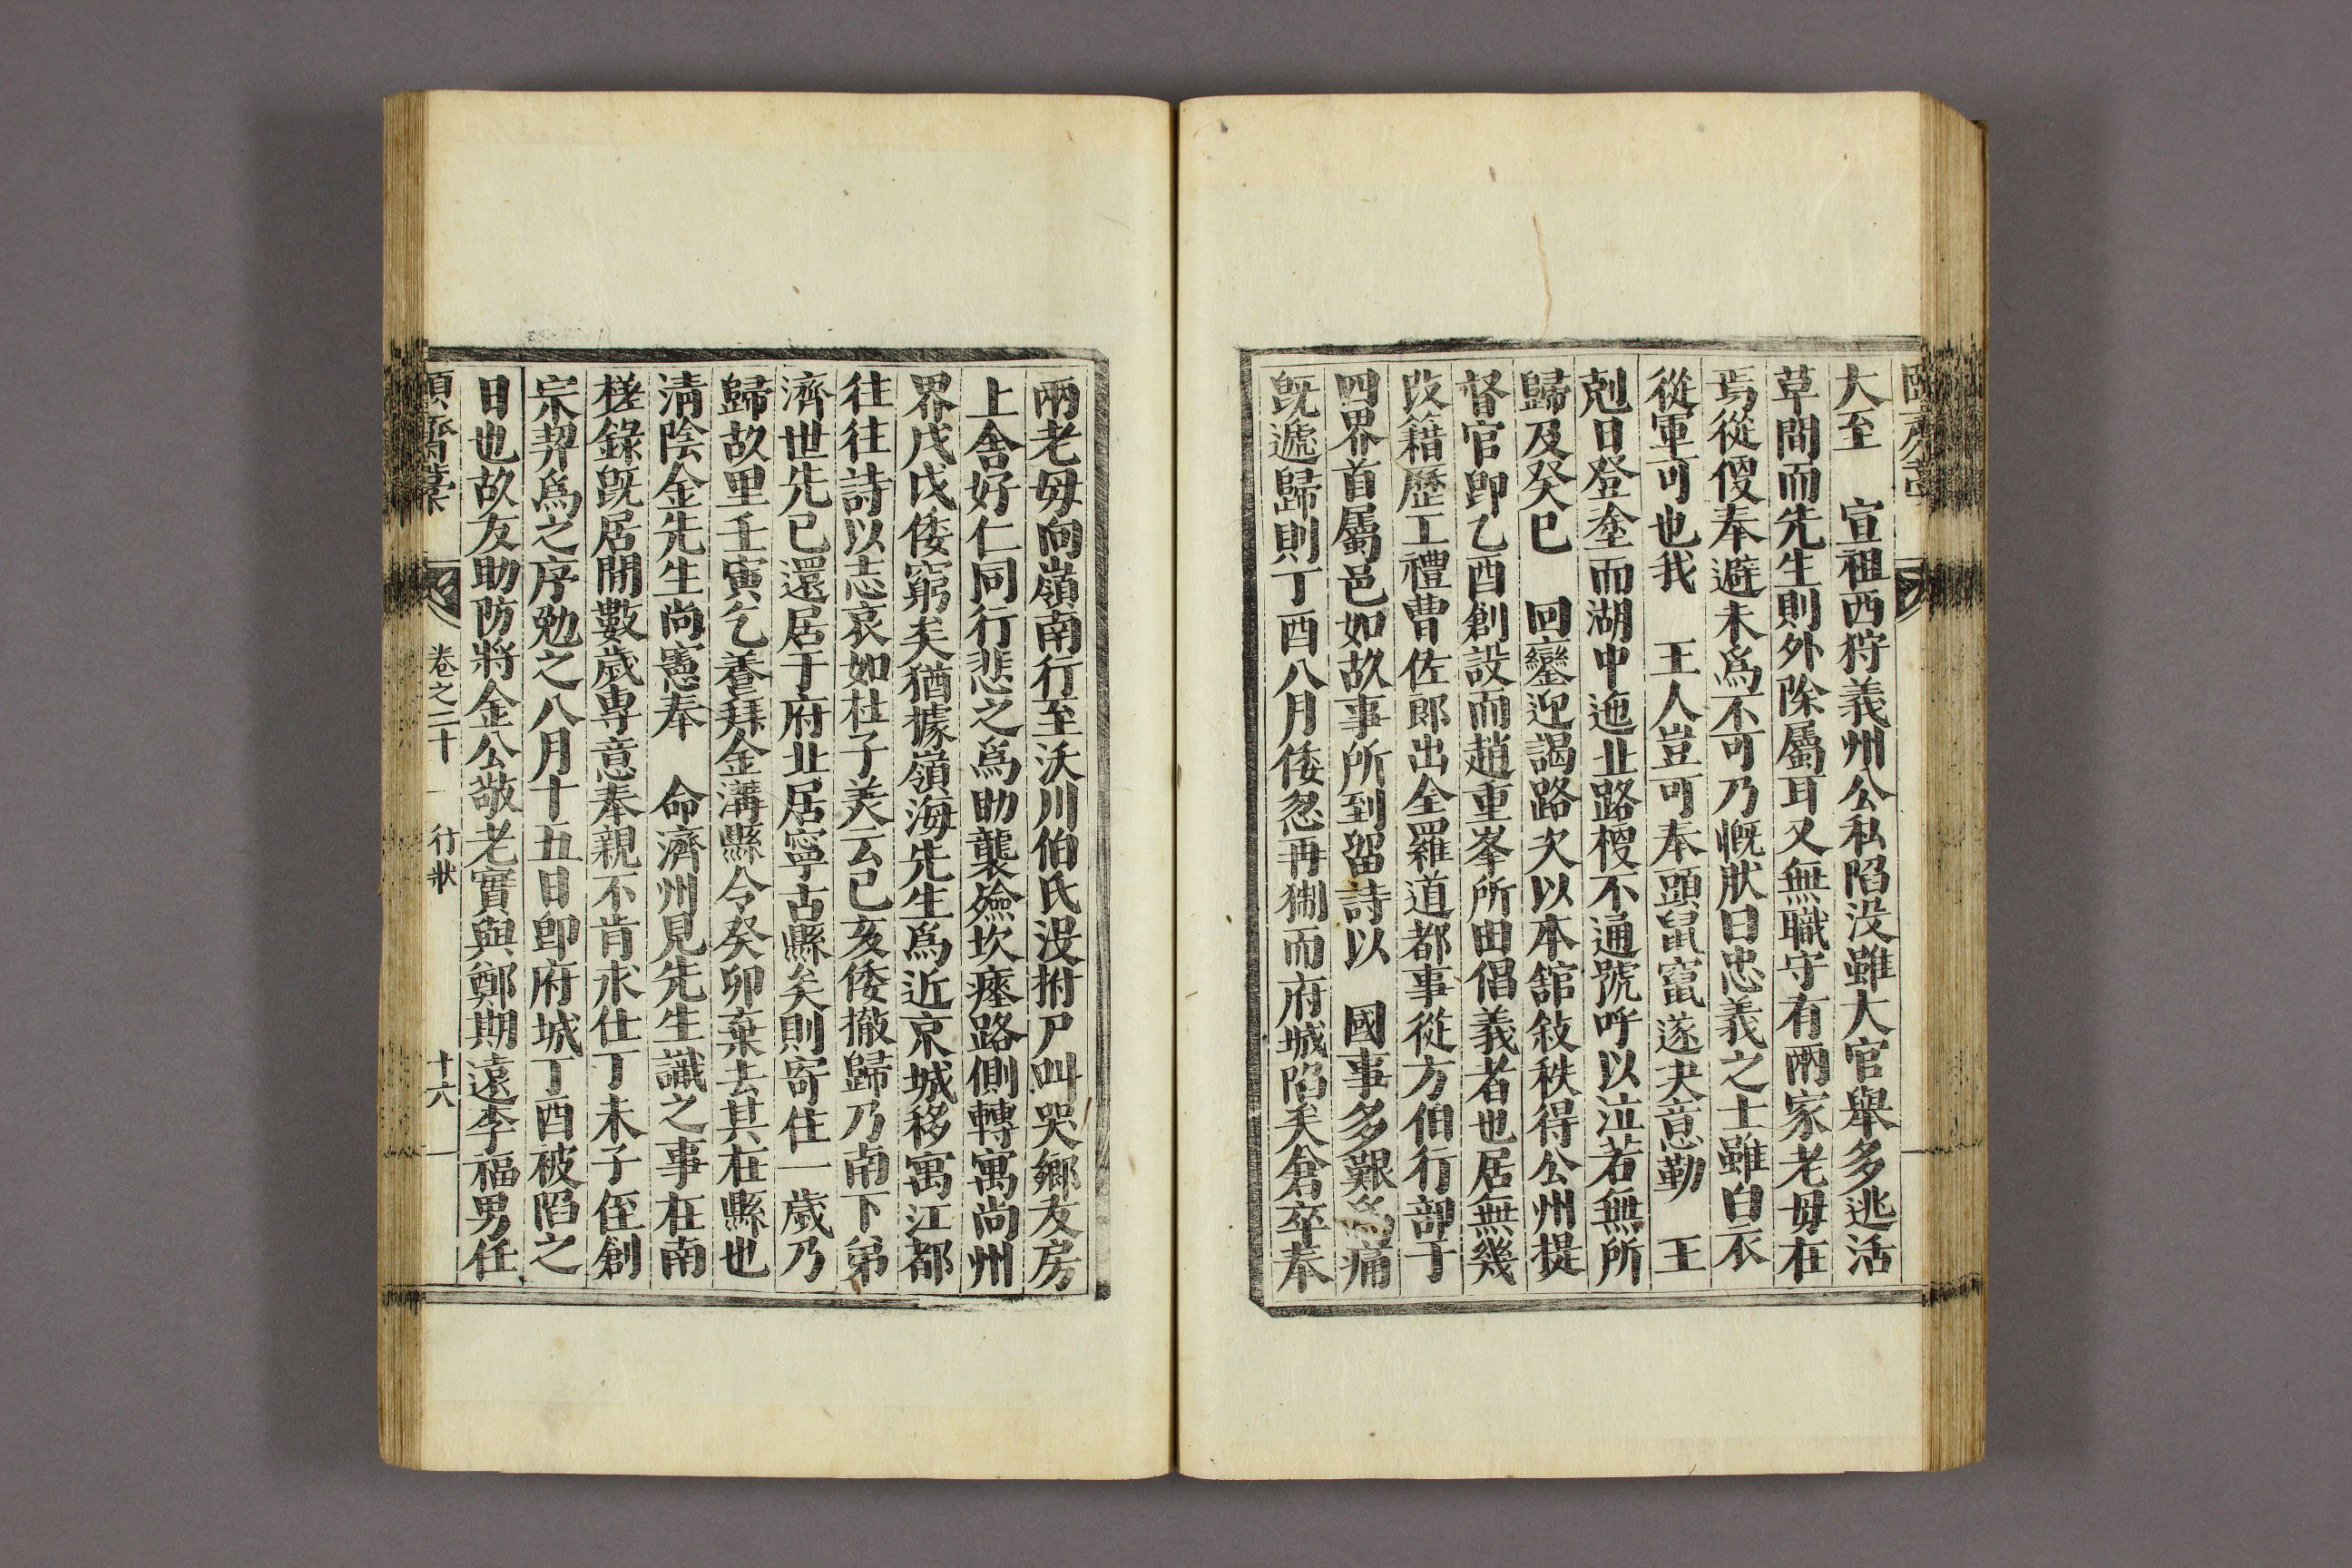 大至　宣祖西狩義州公私陷没雖大官舉多逃活
草間而先生則外除屬耳又無職守有兩家老毋在
焉從傻奉避未爲不可乃慨肰曰忠義之士雖白衣
從軍可也我　王人豈可奉頭鼠竄遂夬意勤　王
剋日登途而湖中迆北路梗不通號呼以泣若無所
歸及癸巳　回鑾迎謁路次以本舘敍秩得公州提
督官卽乙酉創設而趙重峯所由倡義者也居無幾
改籍歷工禮曹佐郎出全羅道都事從方伯行部于
四界首屬邑如故事所到留詩以　國事多艱爲痛
旣遞歸則丁酉八月倭忽再猘而府城陷矣倉卒奉
兩老毋向嶺南行至沃川伯氏沒拊尸叫哭鄉友房
上舍好仁同行悲之爲助襲殮坎瘞路側轉寓尚州
界戊戌倭窮矣猶據嶺海先生爲近京城移寓江都
往往詩以志哀如杜子美云己亥倭撤歸乃南下弟
濟世先已還居于府北居寧古縣矣則寄住一歲乃
歸故里壬寅乞養拜金溝縣令癸卯棄去其在縣也
淸陰金先生尚憲奉　命濟州見先生識之事在南
槎錄旣居閒數歲専意奉親不肯求仕丁未子侄創
宗契爲之序勉之八月十五日卽府城丁酉被陷之
日也故友助防將金公敬老實與鄭期遠李福男任
頥齋藁　卷之二十　行狀　十六